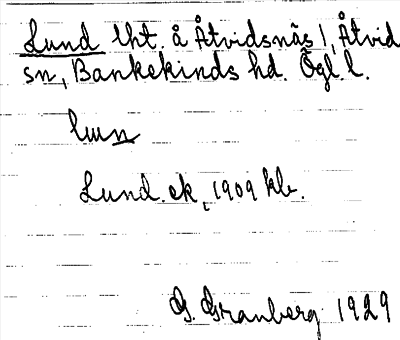 Lund lht. å Åtvidsnäs 1, Åtvid
sn, Bankekinds hd. Ögl. l.
Lund. ek, 1909 kb.
G. Granberg 1929